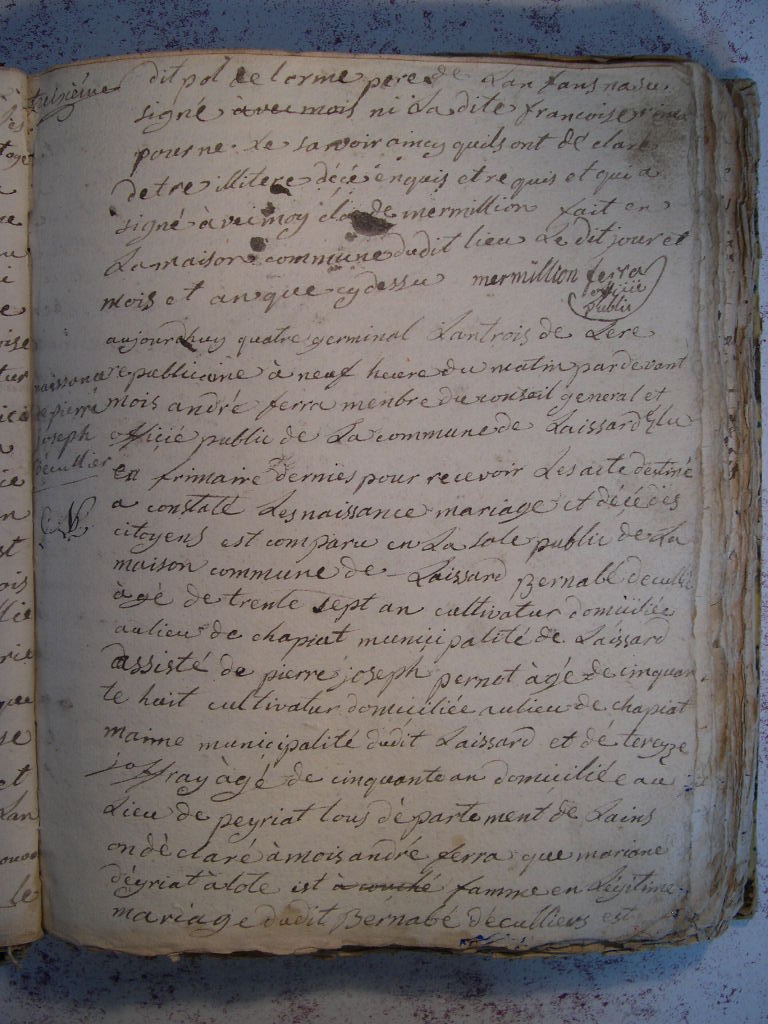 troisieme
dit pol de lorme pere de Lan fans nasu
signé avec mois ni La dite francoise
pour ne Le savoir aincy quils ont dé clare
detre illitere décé enquis et re quis et qui a
signé à vec moy clode mermillion fait en
La maison commune dudit lieu Le dit jour et
mois et an que cy dessu mermillion ferra
officié
public
aujourdhuy quatre germinal Lantrois de Lere
republicaine à neuf heure du matin pardevant
mois andré ferra menbre du consail general et
officié public de La commune de Laissard Elu
en frimaire dernies pour recevoir Les acte destiné
a constaté Les naissance mariage et décédes
citoyens est comparu en La sale public de La
maison commune de Laissard Bernabé decullie
àgé de trente sept an cultivatur domiciliée
au lieu de chapiat municipalité de Laissard
assisté de pierre joseph pernot àgé de cinquan
te huit cultivatur domiciliée au lieu de chapiat
maime municipalité dudit Laissard et de tereyze
joffray àgé de cinquante an domiciliée au
Lieu de peyriat tous département de Lains
on dé claré à mois andré ferra que mariane
déyriat à tote est à couché famme en Légitime
mariage dudit Bernabé décullieus est
naissance
de pierre
joseph
décullier